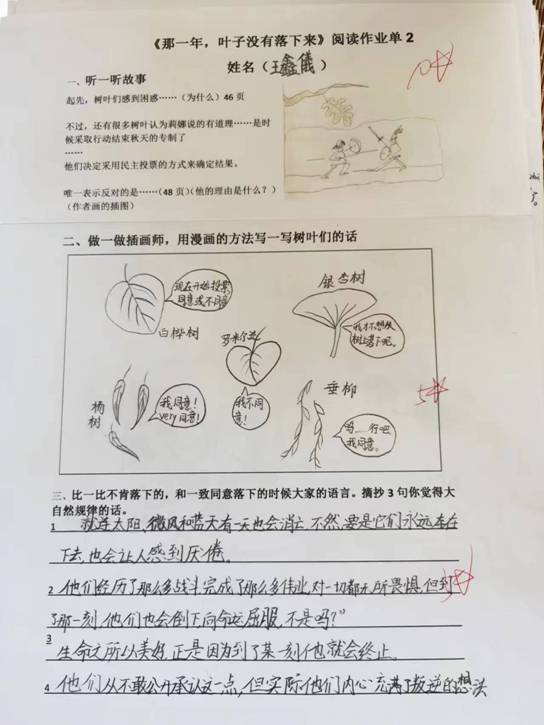 《那一年，叶子没有落下来》阅读作业单 2
姓名（王鑫儀）
10☆
一、听一听故事
起先，树叶们感到困惑……（为什么）46 页
不过，还有很多树叶认为莉娜说的有道理……是时
候采取行动结束秋天的专制了
……
他们决定采用民主投票的方式来确定结果。
唯一表示反对的是……（48 页）（他的理由是什么？）
（作者画的插图）
二、做一做插画师，用漫画的方法写一写树叶们的话
现在开始投票，
同意或不同意
白桦树
银杏树
我才不想从
树上落下呢。
罗米尔达
我不同
意！
杨
树
我同意！
very同意！
垂柳
呜……行吧
我同意。
5☆
三、比一比不肯落下的，和一致同意落下的时候大家的语言。摘抄 3 句你觉得大
自然规律的话。
1 就连太阳、微风和蓝天有一天也会消亡，不然，要是它们永远存在
下去，也会让人感到厌倦。
2 他们经历了那么多战斗完成了那么多伟业，对一切都无所畏惧，但到
了那一刻，他们也会倒下，向命运屈服，不是吗？”
3☆
3
生命之所以美好，正是因为到了某一刻他就会终止。
4 他们从不敢公开承认这一点，但实际他们内心充满了叛逆的想法